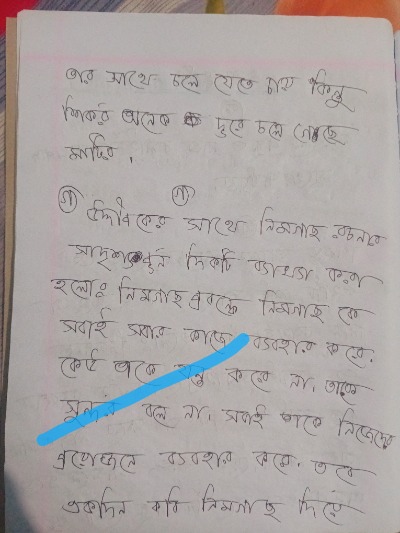 তার সাথে চলে যেতে চায় কিন্তু
শিকড় অনেক দূরে চলে গেছে
মাটির।
গ) গ)
উদ্দীপকের সাথে নিমগাছ রচনার
সাদৃশ্যপূর্ণ দিকটি ব্যাখ্যা করা
হলোঃ নিমগাছ প্রবন্ধে নিমগাছ কে
সবাই সবার কাজে ব্যবহার করে।
কেউ তাকে যত্ন করে না, তাকে
সুন্দর বলে না, সবাই তাকে নিজেদের
প্রয়োজনে ব্যবহার করে। তবে
একদিন কবি নিমগাছ দিয়ে